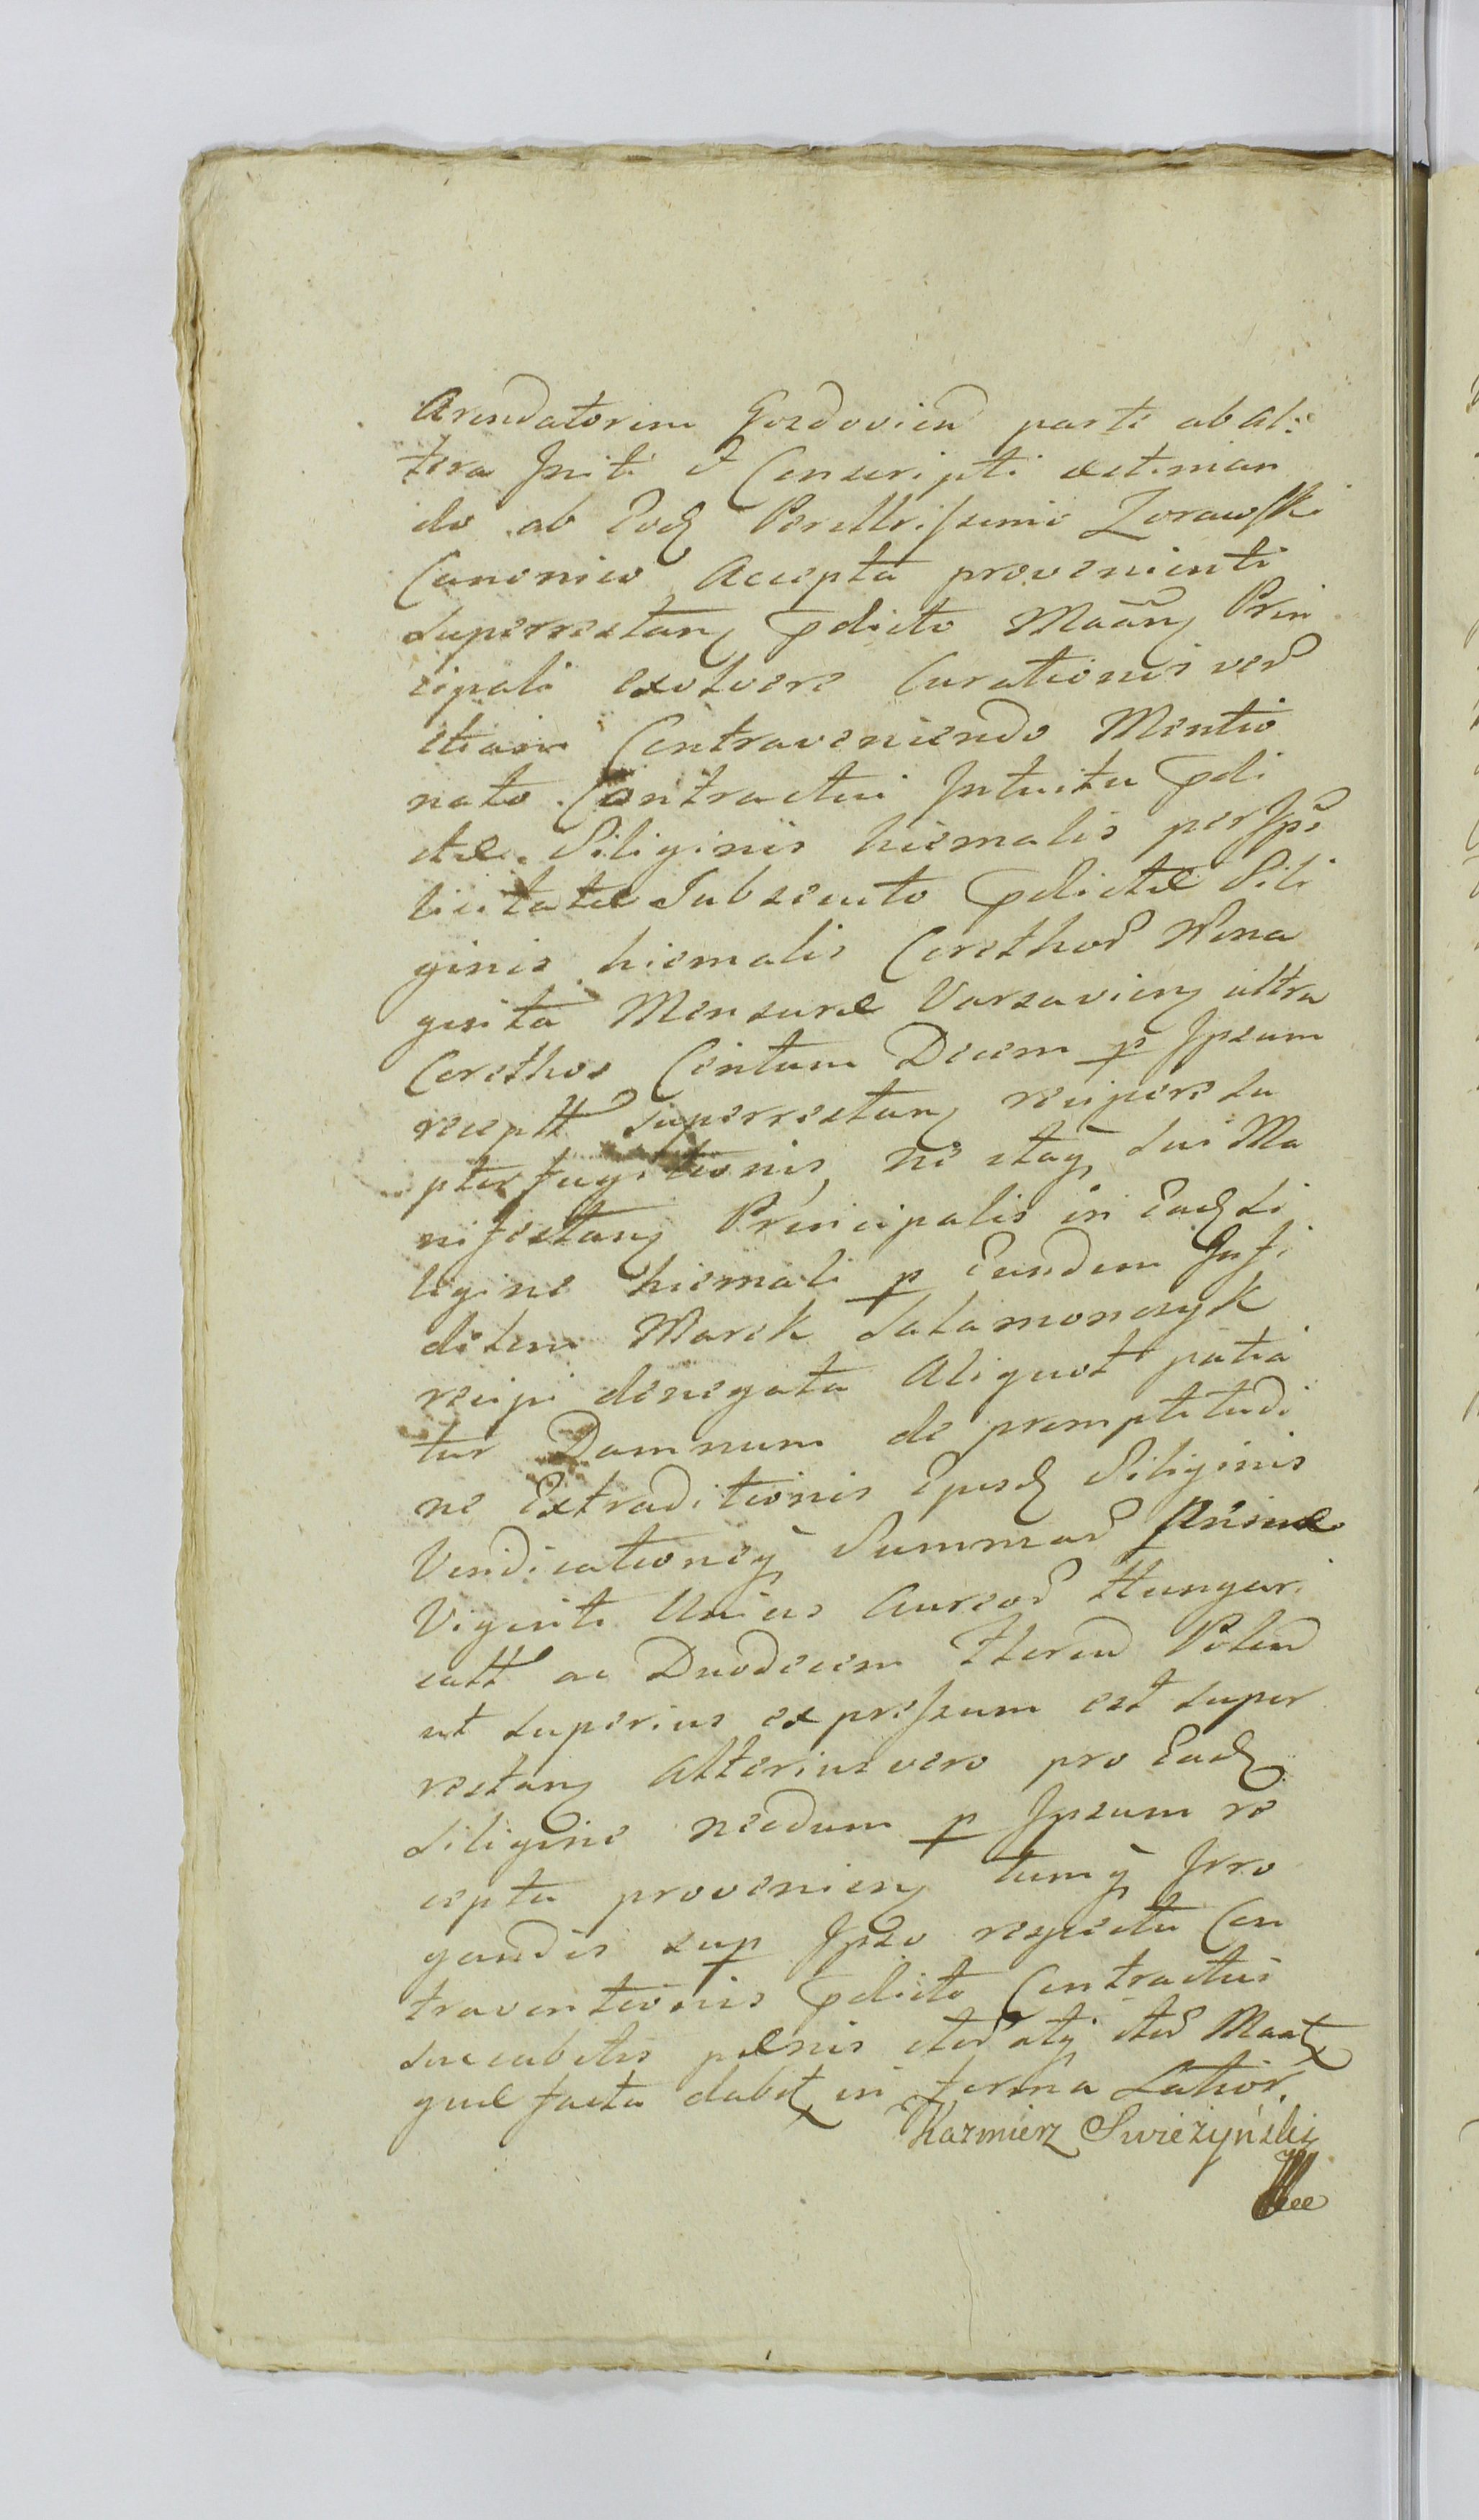 Arendatorem Gozdovien parte ab al:
tera Initi et Conscripti aestiman
do ab Eod Perillrissimo Zorawski
Canonico Accepta provenienti
superrestan pdicto Maãn Prin
cipali exolvere Curationis vero
etiam Contraveniendo Mentio
nato Contractui Intuitu pdi
ctae Siliginis hiemalis per Ips
licitatae Subsecuto pdictae Sili
ginis hiemalis Corethor Nona
ginta Mensurae Varsavien ultra
Corethos Centum Decem p Ipsum
receptt superrestan recipere su
pterfugitionis, ne itaq sui Ma
nifestan Principalis in Ead Si
ligine hiemali p Eundem Infi
delem Marek Salamonczyk
recipi denegata Aliquot patia
tur Damnum de promptitudi
ne Extraditionis Ejusd Siliginis
Vendicationeq Summar Primae
Viginti Unius Aureor Hungari
catt ac Duodecem Floren Polon
ut superius expressum est super
restan Alterius vero pro Ead
Siligine necdum p Ipsum re
cepta provenien tumq Irro
gandis sup Ipso respectu Con
traventionis pdicto Contractui
succubitis paenis iter atq iter Maat
quae facta dabit in forma Latior.
Kazmierz Swieżyński